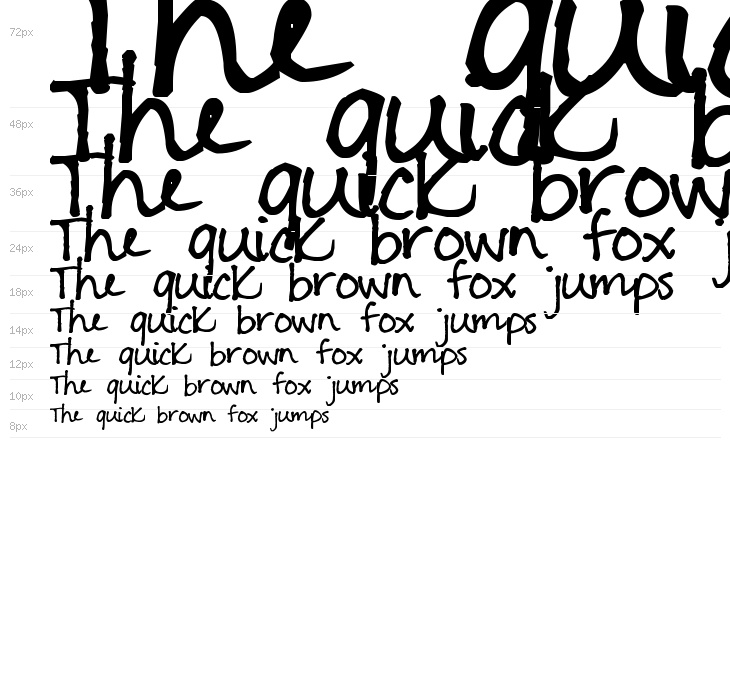 72px The quic
48px The quick b
36px The quick brow
24px The quick brown fox j
18px The quick brown fox jumps
14px The quick brown fox jumps
12px The quick brown fox jumps
10px The quick brown fox jumps
8px The quick brown fox jumps